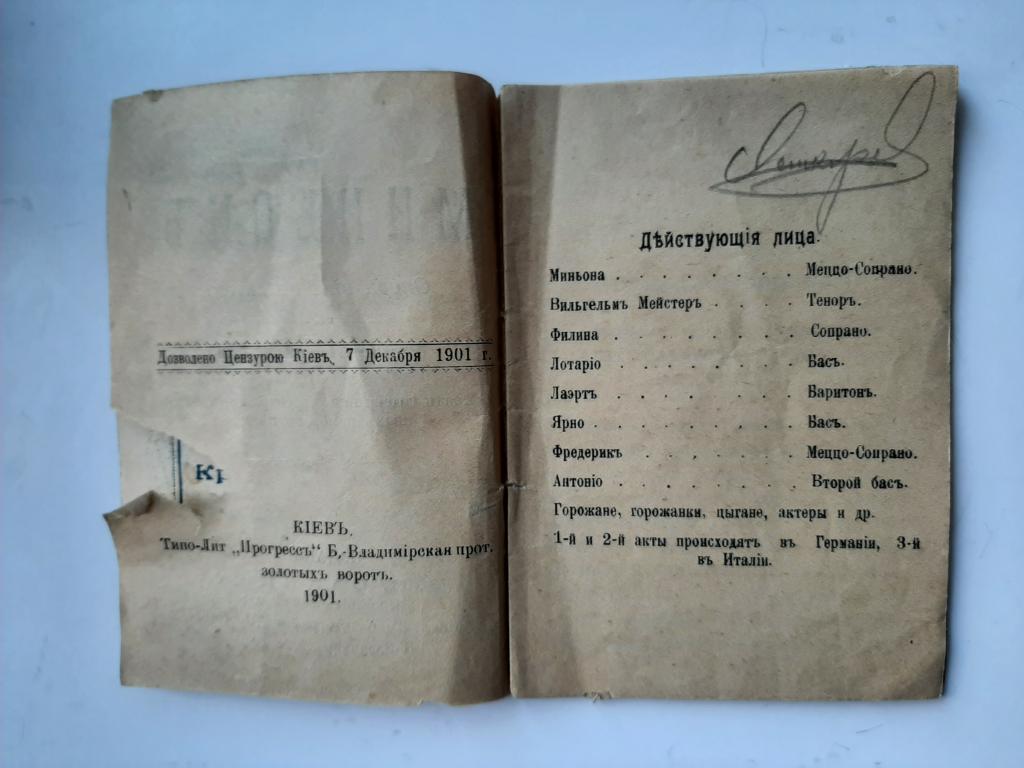 Дозволено Цензурою Кіевъ, 7 Декабря 1901 г.
КІЕВЪ.
Типо-Лит „Прогрессъ“ Б,-Владимірская прот.
золотыхъ воротъ.
1901.
Дѣйствующія лица.
Миньона . . . . . . . . Меццо-Сопрано.
Вильгельмъ Мейстеръ . . . . Теноръ.
Филина . . . . . . . . Сопрано.
Лотаріо . . . . . . . . Басъ.
Лаэртъ . . . . . . . . Баритонъ.
Ярно . . . . . . . . Басъ.
Фредерикъ . . . . . . Меццо-Сопрано.
Антоніо . . . . . . . Второй басъ.
Горожане, горожанки, цыгане, актеры и др.
1-й и 2-й акты происходятъ въ Германіи, 3-й
въ Италіи.